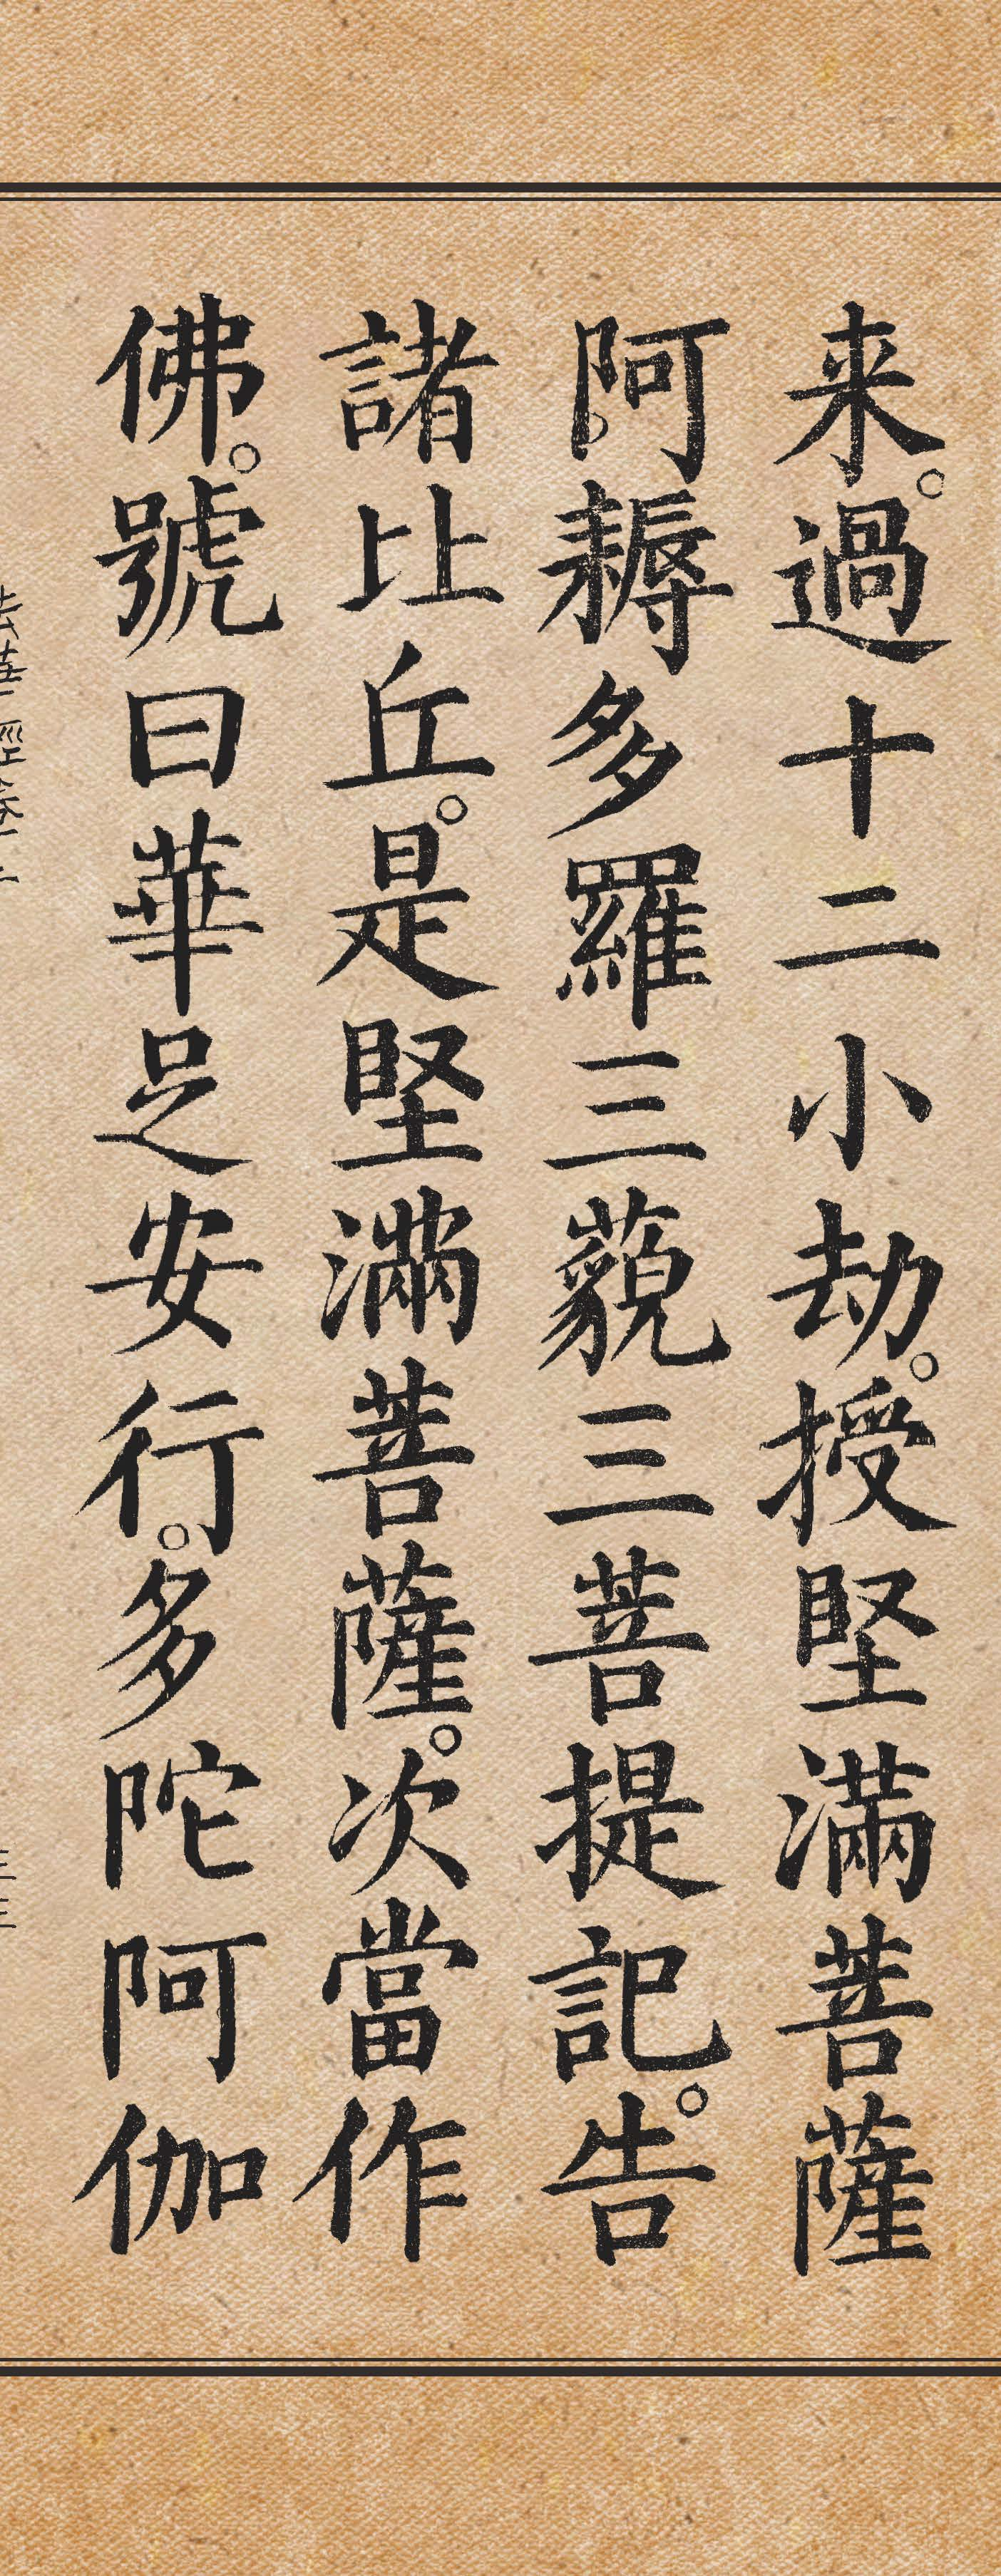 来。過十二小劫。授堅滿菩薩
阿耨多羅三藐三菩提記。告
諸比丘。是堅滿菩薩。次當作
佛。號曰華足安行。多陀阿伽